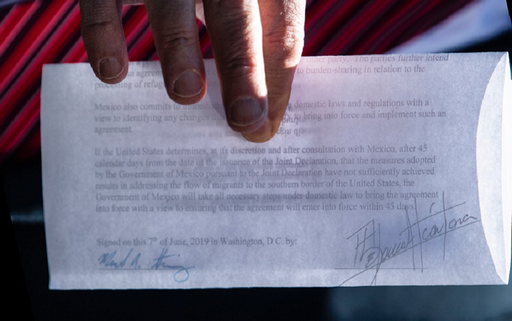 other party. The parties further intend
to burden-sharing in relation to the
processing of refug
Mexico also commits to domestic laws and regulations with a
view to identifying any changes to bring into force and implement such an
agreement.
If the United States determines, at its discretion and after consultation with Mexico, after 45
calendar days from the date of the issuance of the Joint Declaration, that the measures adopted
by the Government of Mexico pursuant to the Joint Declaration have not sufficiently achieved
results in addressing the flow of migrants to the southern border of the United States, the
Government of Mexico will take all necessary steps under domestic law to bring the agreement
into force with a view to ensuring that the agreement will enter into force within 45 days.
Signed on this 7th of June, 2019 in Washington, D.C. by: